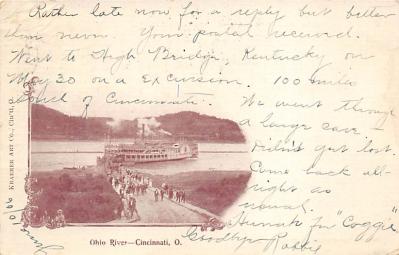 Rather late now for a reply but better
than never. Your postal received.
Went to High Bridge, Kentucky on
May 30 on a Excursion. 100 miles
South of Cincinnati.
We went through
a large cave. I
didn't get lost.
Come back all-
right as
usual.
Hurrah for "Coggie"
Goodbye
KRAEMER ART CO., CIN'TI, O.
Ohio River—Cincinnati, O.